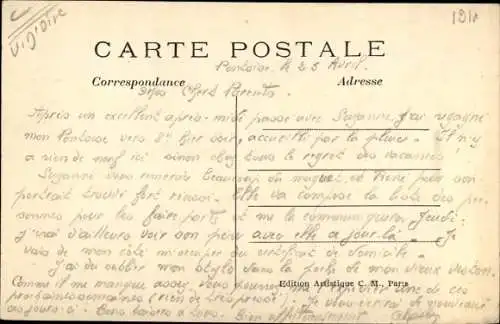 Vigidire
1910
CARTE POSTALE
Correspondance
Adresse
Pontoise, le 25 Avril
Mes Chers Parents
Après un excellent après-midi passé avec Suzanne, j'ai regagné
mon Pontoise vers 8h hier soir, accueilli par la pluie. Il n'y
a rien de neuf ici sinon chez tous le regret des vacances!
Suzanne vous remercie beaucoup du muguet et tient pour son
portrait trouvé fort réussi. Elle va composer la liste des per
sonnes pour les faire parts et me la communiquera Jeudi:
j'irai d'ailleurs voir son père avec elle ce jour là. Je
vais de mon côté m'occuper du certificat de domicile.
J'ai dû oublier mon stylo dans la poche de mon vieux veston.
Comme il me manque assez vous pouvez me l'expédier une de ces
prochaines semaines (rien de très pressé). Je vous écrirai de
Bons baisers à tous. Bien affectueusement
Edition Artistique C. M., Paris